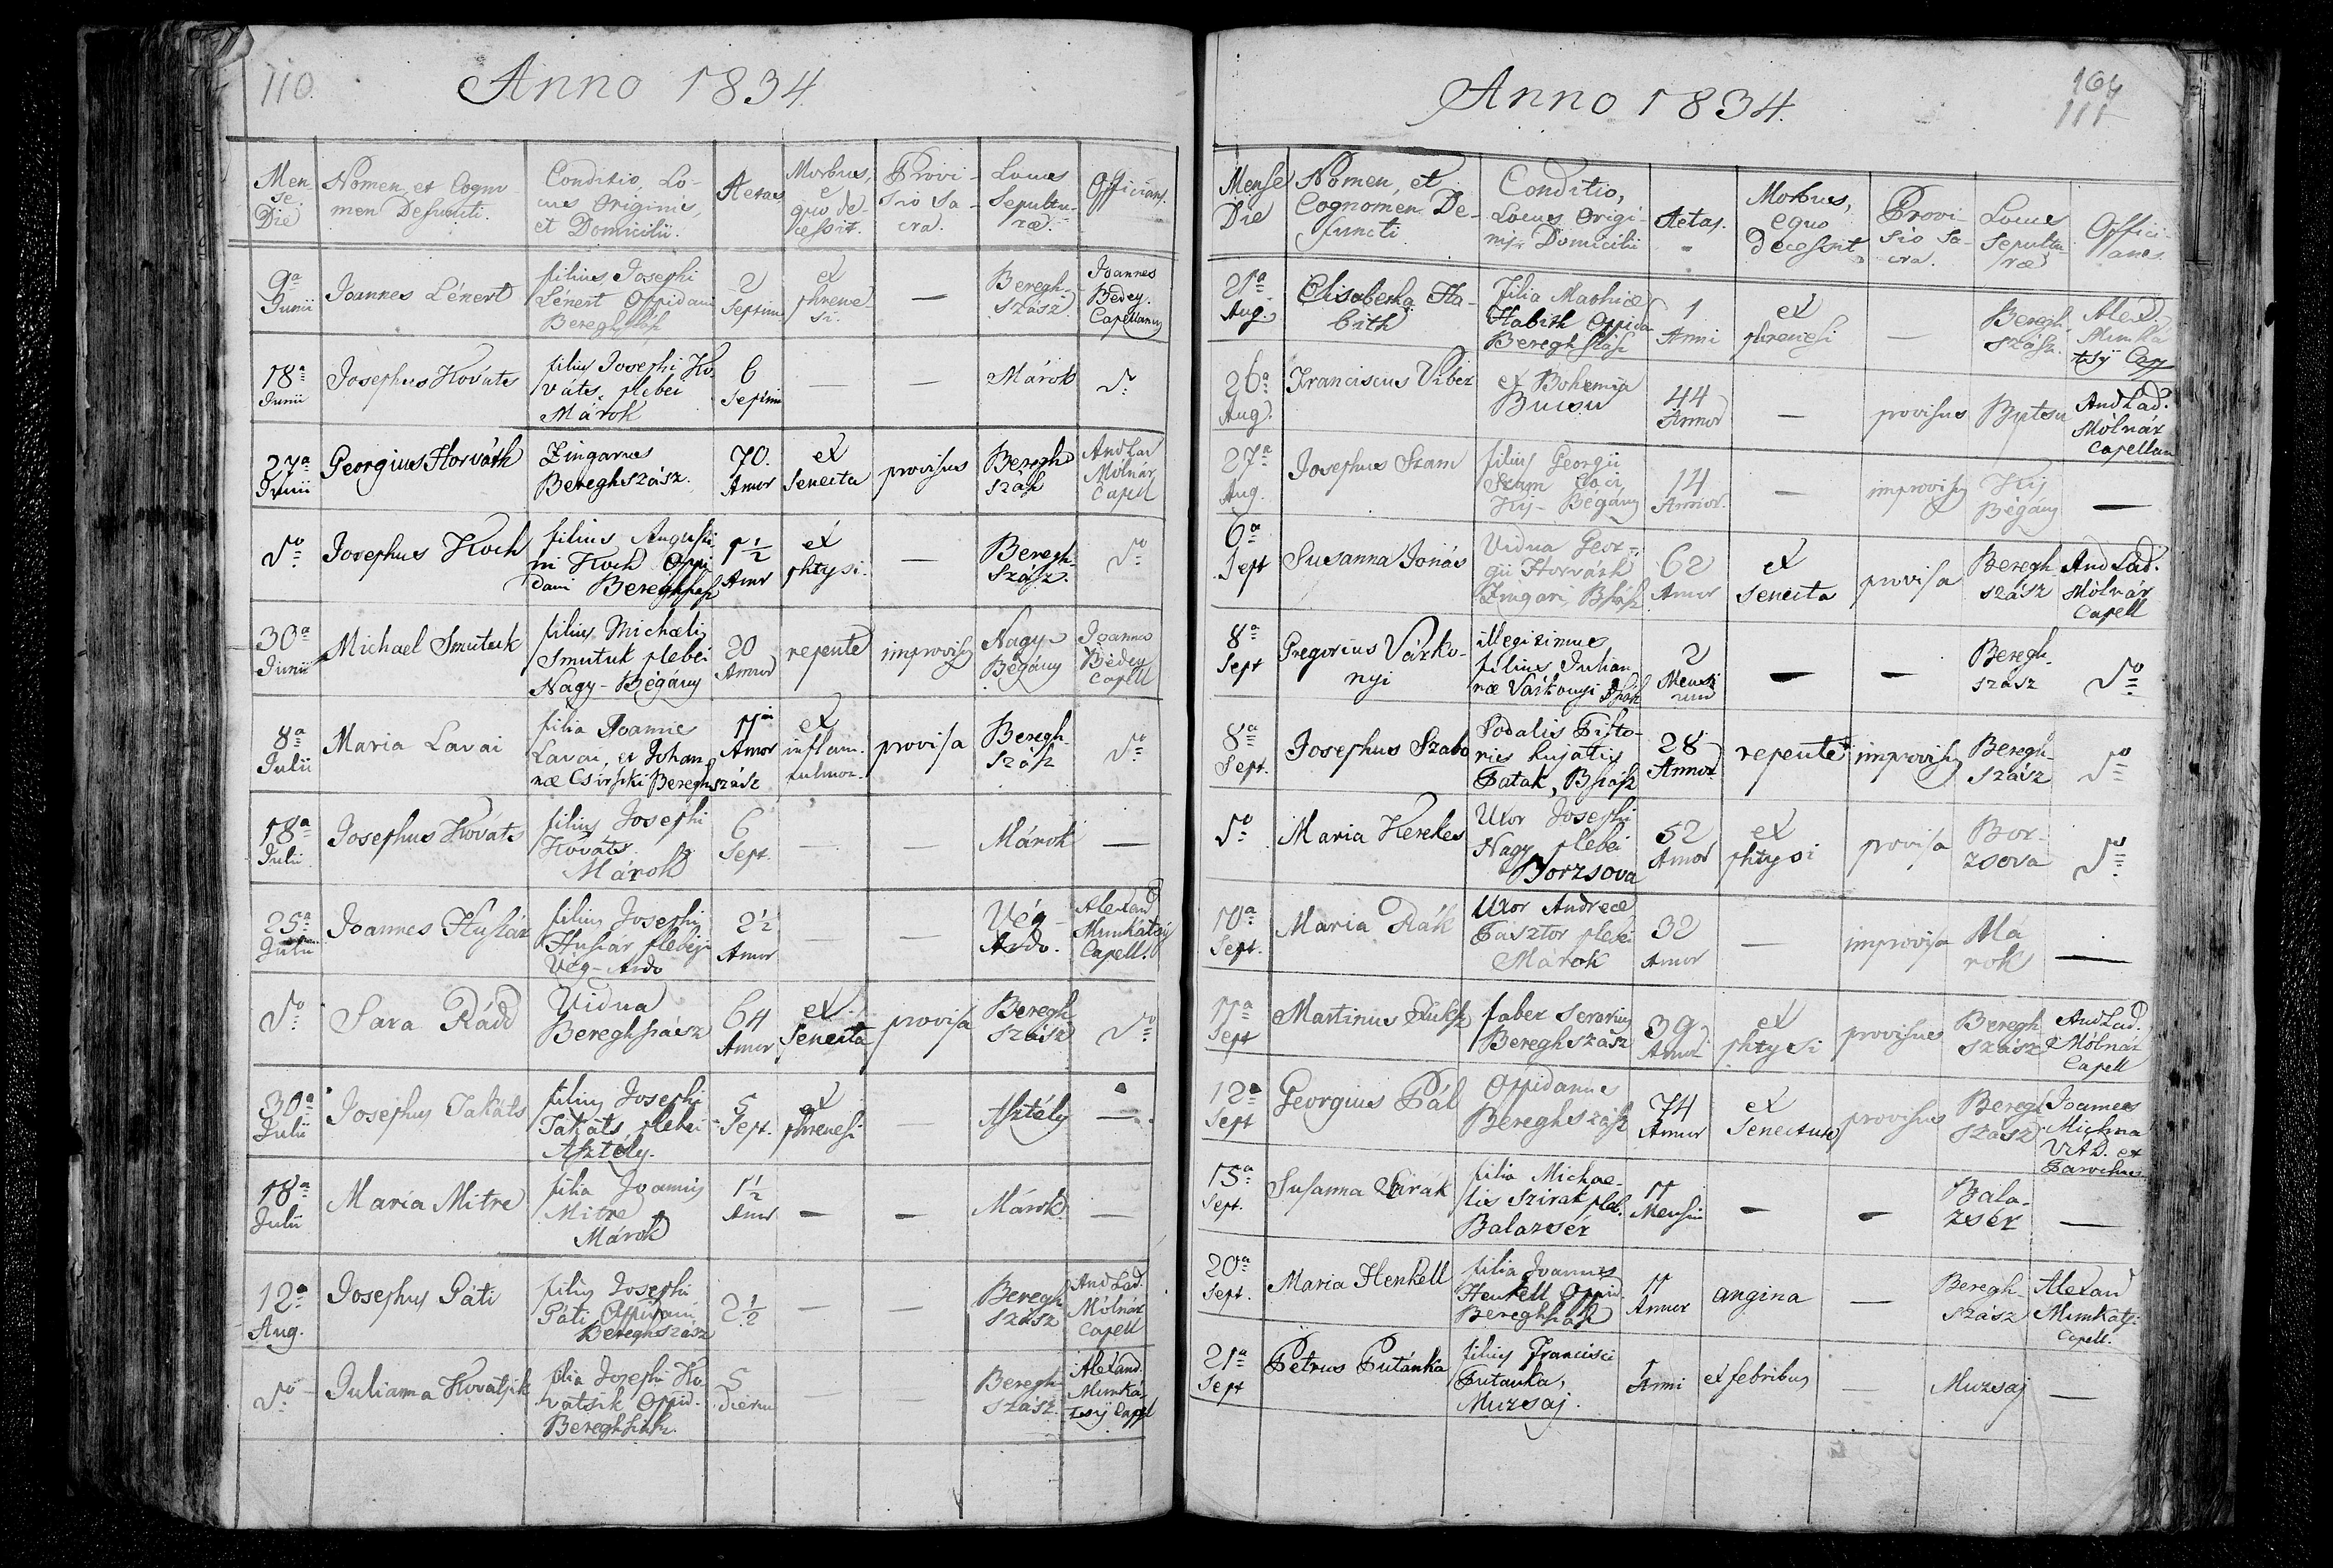 110.
Anno 1834.
Men-
se
Die
Nomen, et Cogno-
men Defuncti.
Conditio, Lo-
cus Originis,
et Domicilii.
Aetas
Morbus,
e
quo de-
cessit.
Provi-
sio Sa-
cra.
Locus
Sepultu-
ræ.
Officians.
9a
Junii
Joannes Lénert
filius Josephi
Lénert Oppidani
Bereghszász
2
Septim
ex
phrene-
si.
—
Beregh-
szász.
Joannes
Bedey.
Capellanus
18a
Junii
Josephus Kováts
filius Josephi Ko-
váts, plebei
Márok
6
Septim
—
—
Márok
Do
27a
Junii
Georgius Horváth
Zingarus
Bereghszász.
70.
Annor
ex
Senecta
provisus
Beregh
szász
And Lad
Mólnár
Capell
Do
Josephus Koch
filius Augusti
ni Koch Oppi
dani Bereghszász
1½
Annor
ex
phtysi.
—
Beregh-
szász.
Do
30a
Junii
Michael Smutuk
filius Michaelis
Smutuk plebei
Nagy-Bégány
20
Annor
repente
improvis
Nagy-
Bégány
Joannes
Bedey
Capell
8a
Julii
Maria Lavai
filia Joannis
Lavai, et Johan
næ Csirszki Bereghszász
11
Annor
ex
inflam.
pulmon.
provisa
Beregh-
szász
Do
18a
Julii
Josephus Kováts
filius Josephi
Kováts.
Márok
6
Sept.
—
—
Márok
—
25a
Julii
Joannes Huszár
filius Josephi
Huszár plebei
Vég-Ardo
2½
Annor
—
—
Vég-
Ardo.
Alexand
Munkátsy
Capell.
Do
Sara Rádd
Vidua
Bereghszász
64
Annor
ex
Senecta
provisa
Beregh
szász
Do
30a
Julii
Josephus Takáts
filius Josephi
Takáts plebei
Asztély.
5
Sept.
ex
phrenesi
—
Asztély
—
18a
Julii
Maria Mitre
filia Joannis
Mitre
Márok
1½
Annor
—
—
Márok
—
12a
Aug.
Josephus Páti
filius Josephi
Páti Oppidani
Bereghszász
2½
—
—
Beregh
szász
And Lad.
Mólnár
Capell
Do
Julianna Kovátsik
filia Josephi Ko-
vátsik Oppid.
Bereghszász.
5
Dierum
—
Beregh-
szász.
Alexand.
Munká-
tsy Capell
Anno 1834.
164
111
Mense
Die
Nomen, et
Cognomen De-
functi
Conditio,
Locus Origi-
nis, Domicilii
Aetas.
Morbus,
e quo
decessit
Provi-
sio Sa-
cra.
Locus
Sepultu
ræ
Offici-
ans.
21a
Aug.
Elisabetha Ha-
bith
filia Mathiæ
Habith Oppida
Bereghszász
1
Anni
ex
phrenesi
—
Beregh
szász.
Alex.
Munka
tsy Cap
26a
Aug.
Franciscus Viber
ex Bohemia
Bucsu
44
Annor
—
provisus
Butsu
And Lad.
Mólnár
Capellan
27a
Aug.
Josephus Szam
filius Georgii
Szam
Kis-Bégány
14
Annor.
—
improvis
Kis
Bégány
—
6a
Sept
Susanna Jónás
Vidua Geor-
gii Horváth
Zingari, Bszász
62
Annor
ex
Senecta
provisa
Beregh
szász
And Lad.
Mólnár
Capell
8a
Sept
Gregorius Várko-
nyi
illegitimus
filius Julian-
næ Várkonyi Bszász
2
Mensi
um
—
—
Beregh-
szász
Do
8a
Sept.
Josephus Szabo
Sodalis Pisto-
ries hujatis
Patak, Bszász
28
Annor
repente
improvis
Beregh-
szász
Do
Do
Maria Kerekes
Uxor Josephi
Nagy plebei
Borzsova
52
Annor
ex
phtysi
provisa
Bor-
zsova
Do
10a
Sept.
Maria Rák
Uxor Andreæ
Pásztor plebei
Márok
32
Annor
—
improvisa
Má
rok
—
11a
Sept
Martinus Fuksz
faber serarius
Bereghszász
39
Annor
ex
phtysi
provisus
Beregh
szász
And Lad.
Mólnár
Capell
12a
Sept
Georgius Pál
Oppidanus
Bereghszász
74
Annor
ex
Senectute
provisus
Beregh
szász
Joannes
Michna
VAD. et
Parochus
15a
Sept.
Susanna Szirak
filia Michae-
lis Szirak pleb.
Balazsér
11
Mensiu
—
—
Bala-
zsér
—
20a
Sept.
Maria Henkell
filia Joannes
Henkell Oppid.
Bereghszász
11
Annor
angina
—
Beregh-
szász
Alexand
Munkátsi
Capell.
21a
Sept
Petrus Putánka
filius Francisci
Putanka,
Muzsaj.
1
Anni
ex febribus
—
Muzsaj
—